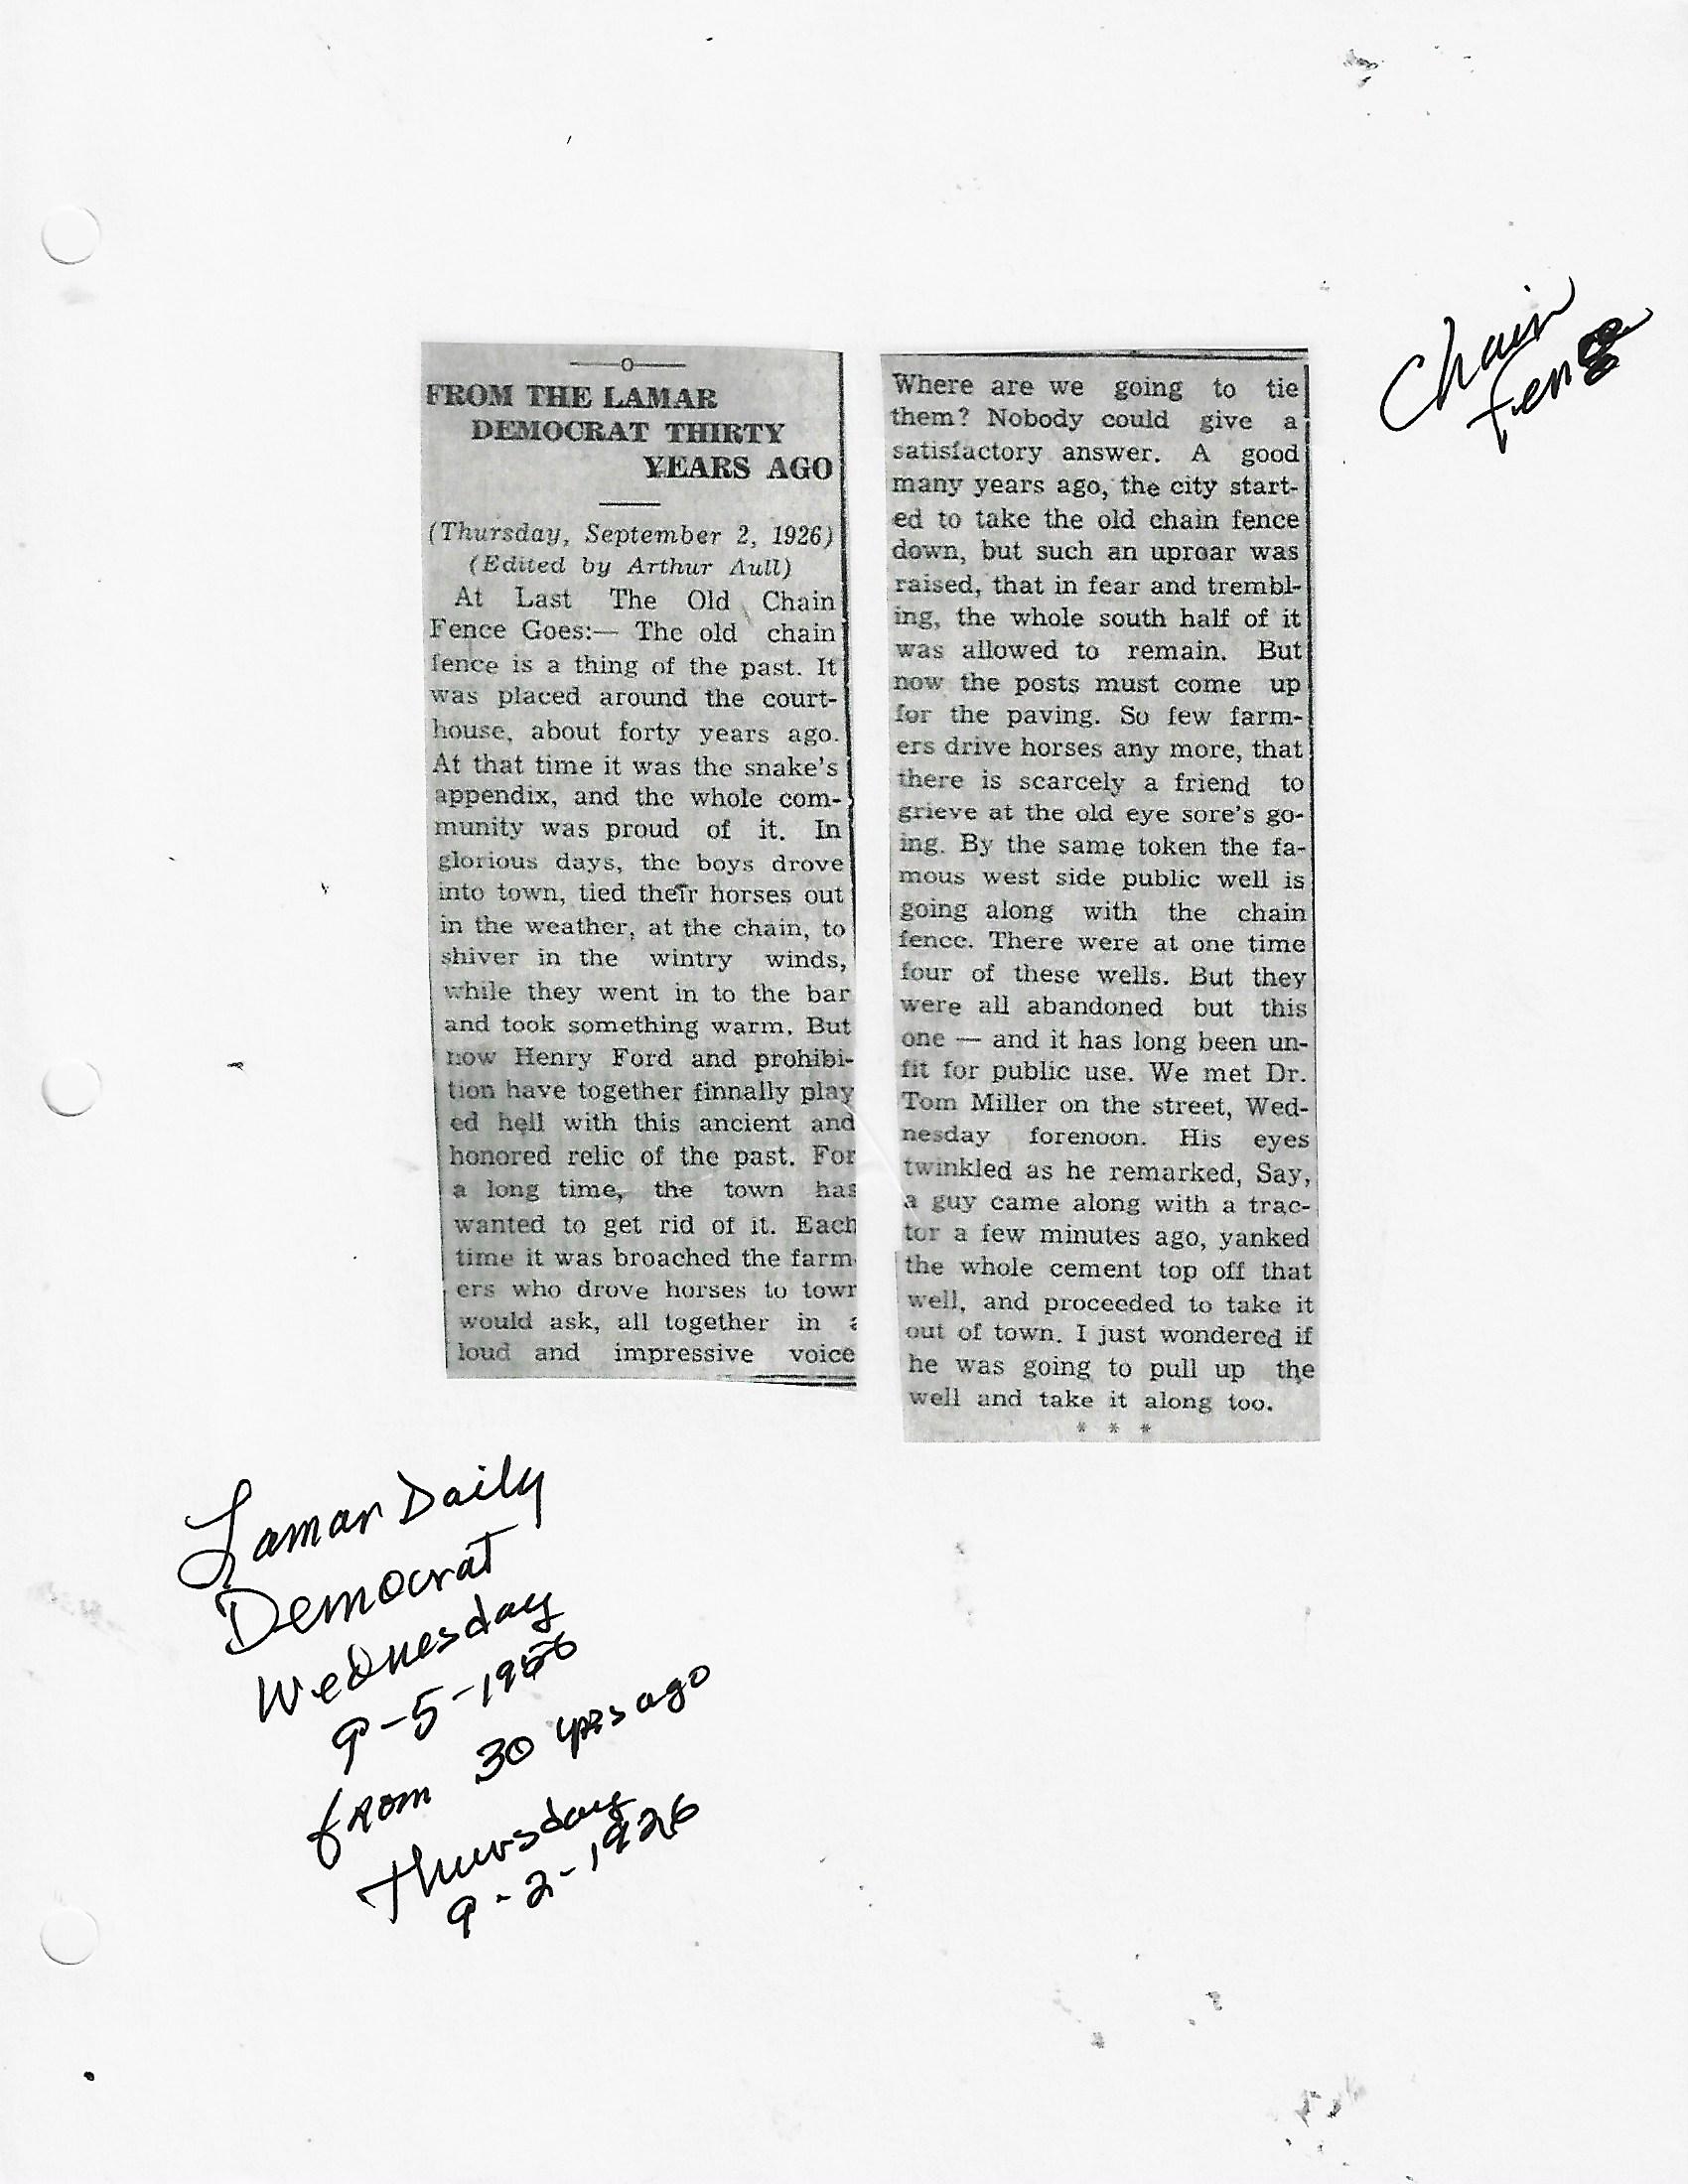 Chain
Fence
—o—
FROM THE LAMAR
DEMOCRAT THIRTY
YEARS AGO
(Thursday, September 2, 1926)
(Edited by Arthur Aull)
At Last The Old Chain
Fence Goes:— The old chain
fence is a thing of the past. It
was placed around the court-
house, about forty years ago.
At that time it was the snake's
appendix, and the whole com-
munity was proud of it. In
glorious days, the boys drove
into town, tied their horses out
in the weather, at the chain, to
shiver in the wintry winds,
while they went in to the bar
and took something warm. But
now Henry Ford and prohibi-
tion have together finnally play
ed hell with this ancient and
honored relic of the past. For
a long time, the town has
wanted to get rid of it. Each
time it was broached the farm-
ers who drove horses to town
would ask, all together in a
loud and impressive voice
Where are we going to tie
them? Nobody could give a
satisfactory answer. A good
many years ago, the city start-
ed to take the old chain fence
down, but such an uproar was
raised, that in fear and trembl-
ing, the whole south half of it
was allowed to remain. But
now the posts must come up
for the paving. So few farm-
ers drive horses any more, that
there is scarcely a friend to
grieve at the old eye sore's go-
ing. By the same token the fa-
mous west side public well is
going along with the chain
fence. There were at one time
four of these wells. But they
were all abandoned but this
one — and it has long been un-
fit for public use. We met Dr.
Tom Miller on the street, Wed-
nesday forenoon. His eyes
twinkled as he remarked, Say,
a guy came along with a trac-
tor a few minutes ago, yanked
the whole cement top off that
well, and proceeded to take it
out of town. I just wondered if
he was going to pull up the
well and take it along too.
* * *
Lamar Daily
Democrat
Wednesday
9-5-1956
from 30 yrs ago
Thursday
9-2-1926